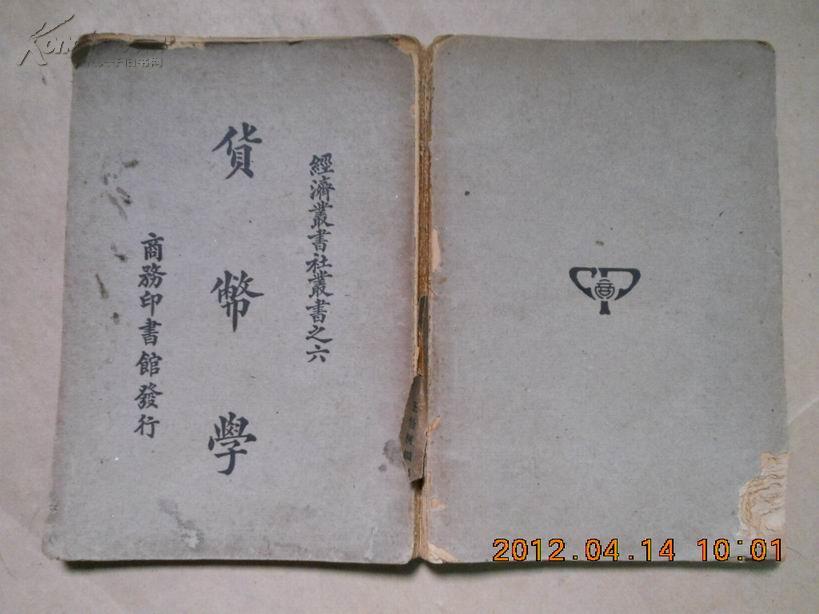 經濟叢書社叢書之六
貨幣學
商務印書館發行
商
2012.04.14 10:01